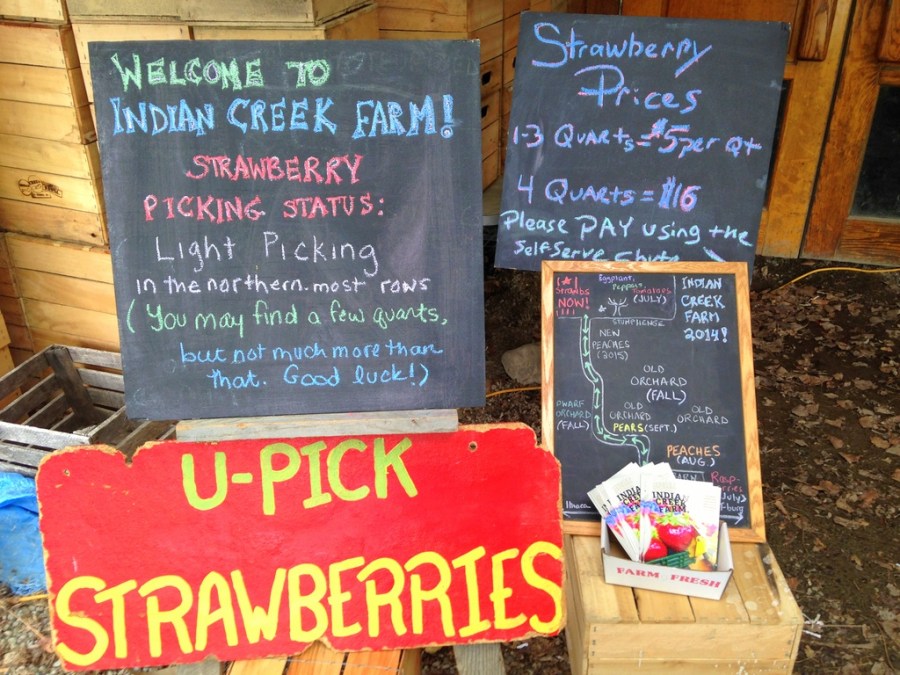 WELCOME TO
INDIAN CREEK FARM!
STRAWBERRY
PICKING STATUS:
Light Picking
in the northern-most rows
(You may find a few quarts,
but not much more than
that. Good luck!)
Strawberry
Prices
1-3 QUARTS = $5 per Qt
4 QUARTS = $16
Please PAY using the
Self Serve
U-PICK
STRAWBERRIES
NOW!
Eggplant,
Peppers
Tomatoes
(JULY)
STONEHENGE
INDIAN
CREEK
FARM
2014!
NEW
PEACHES
(2015)
OLD
ORCHARD
(FALL)
DWARF
ORCHARD
(FALL)
OLD
ORCHARD
PEARS (SEPT.)
OLD
ORCHARD
PEACHES
(AUG.)
Rasp-
berries
(July)
Ithaca
INDIAN
CREEK
FARM
FARM FRESH